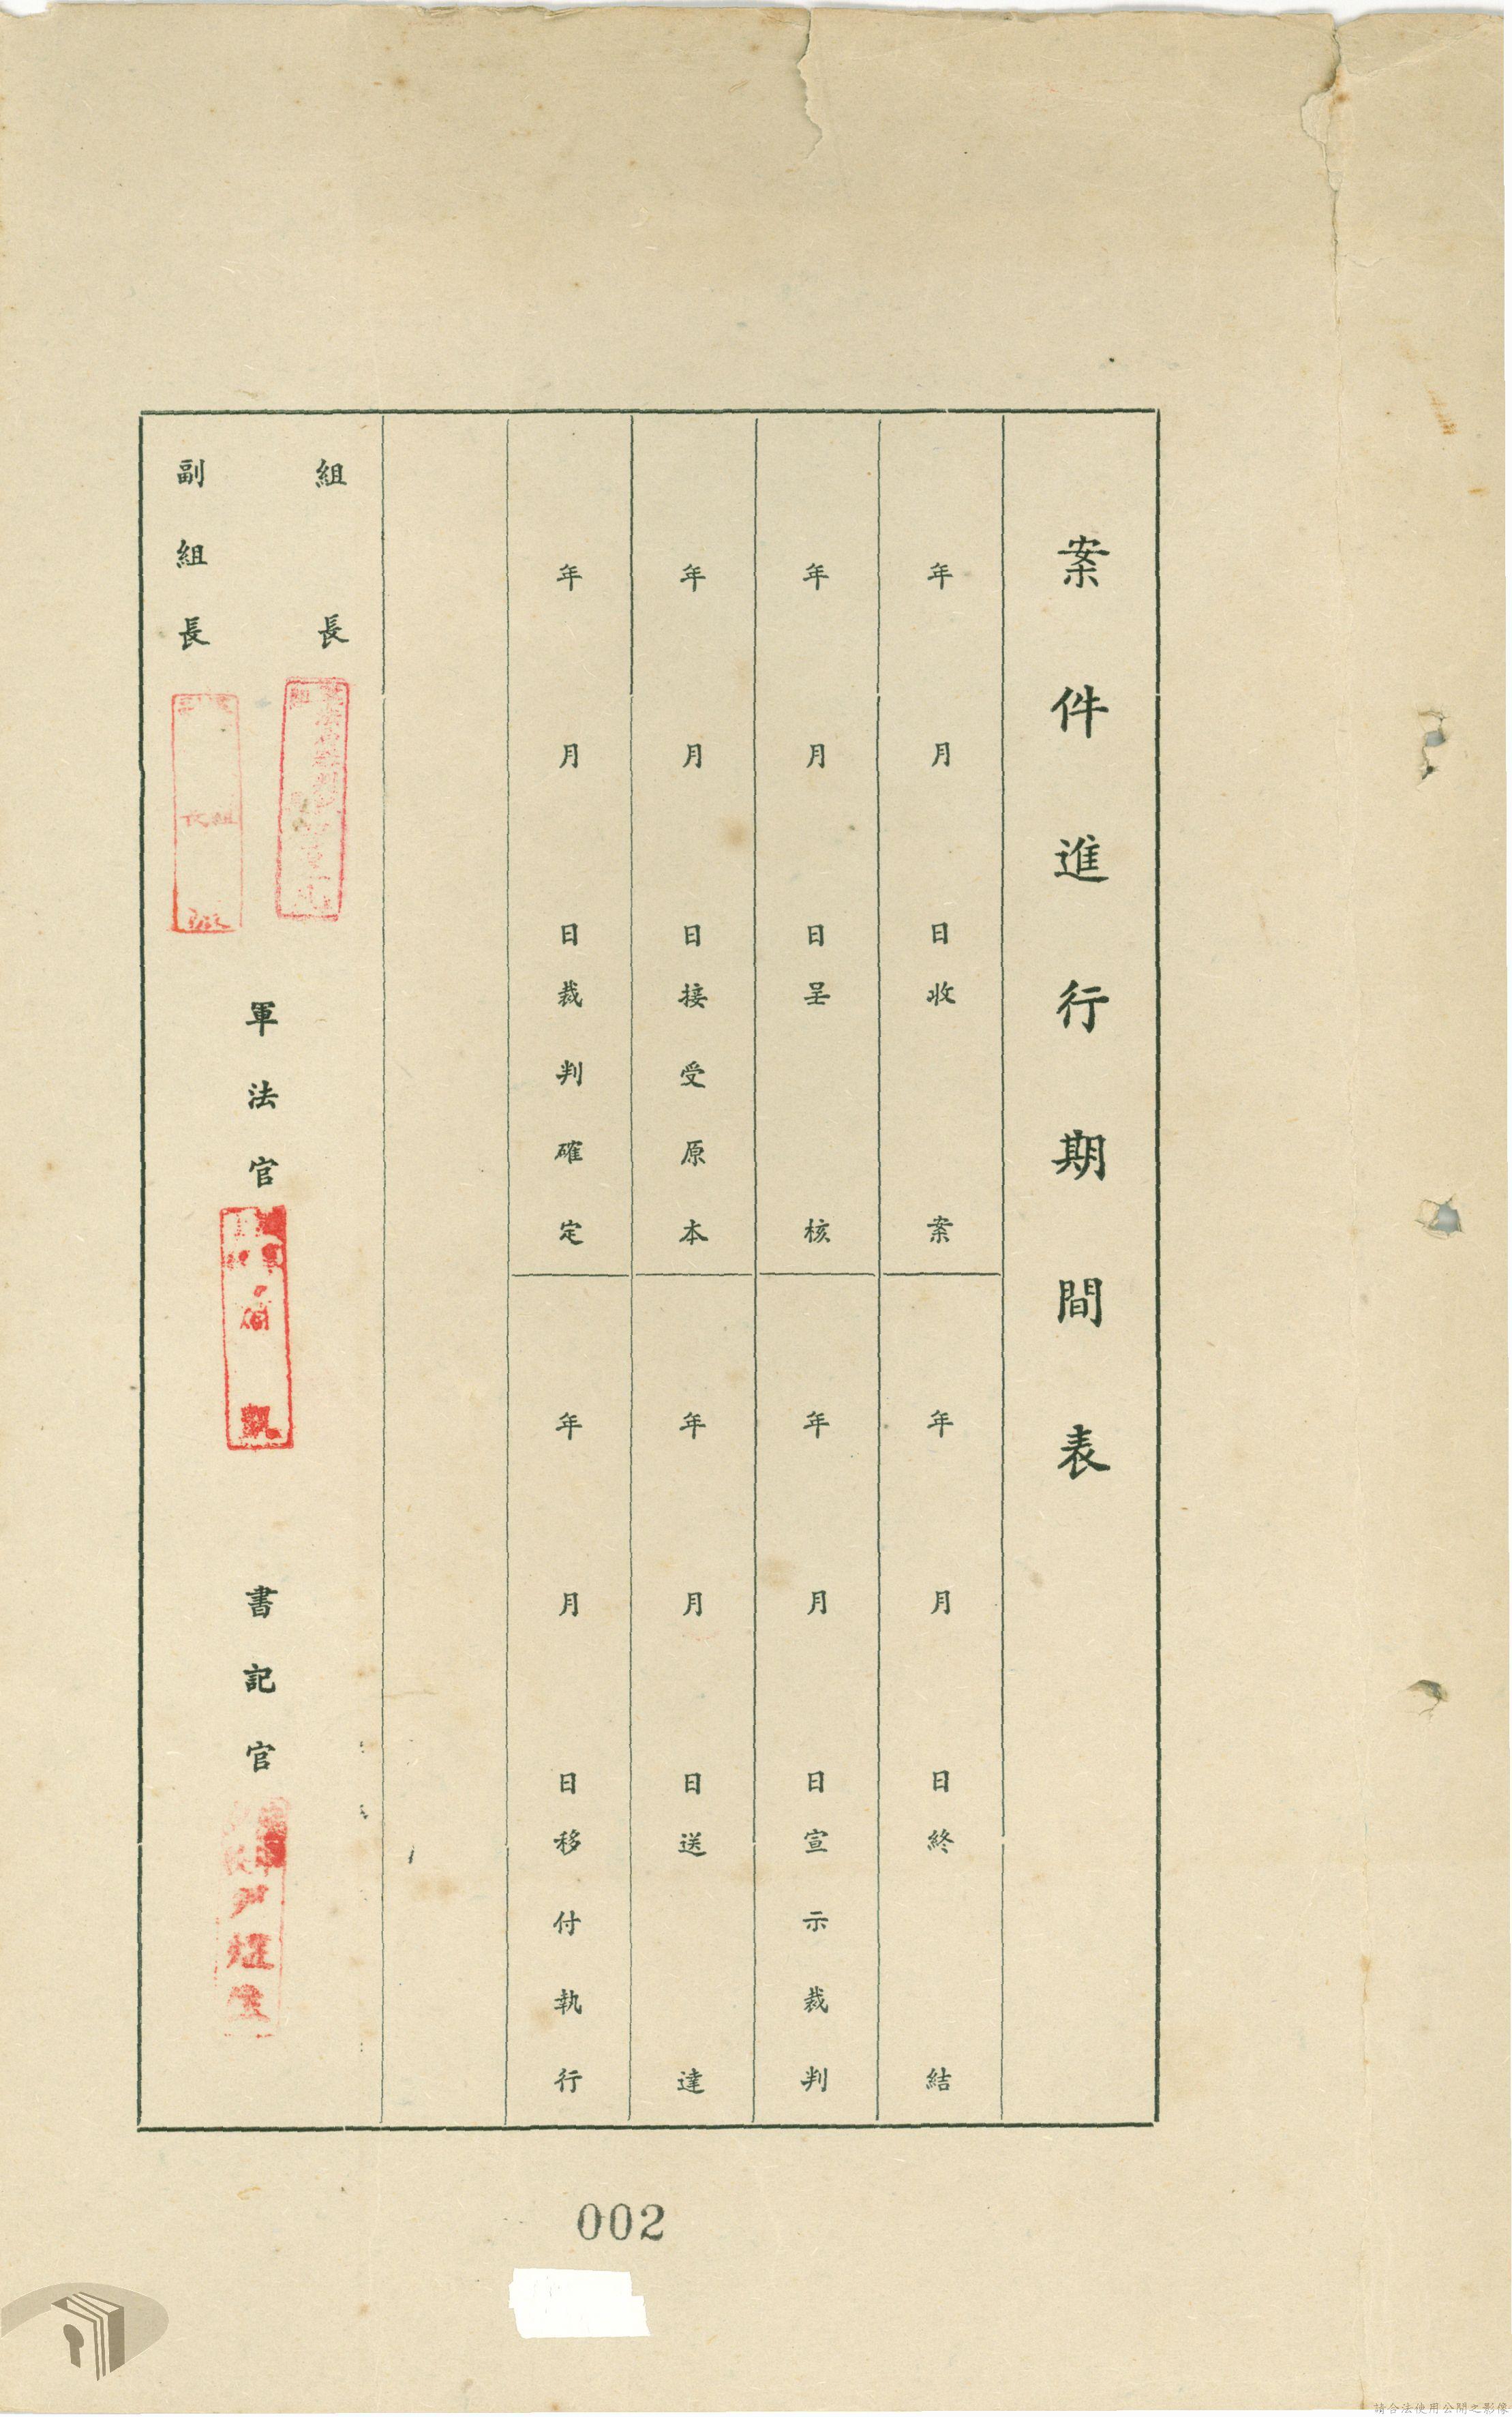 案件進行期間表
年月日收案
年月日終結
年月日呈核
年月日宣示裁判
年月日接受原本
年月日送達
年月日裁判確定
年月日移付執行
組長
副組長
組長
軍法官
書記官
尹
002
請合法使用公開之影像